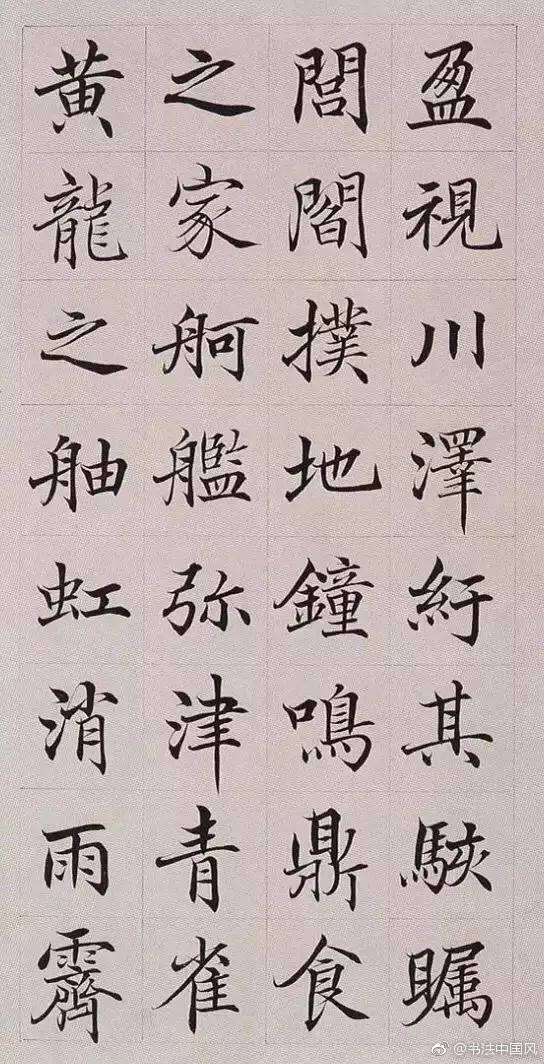 盈視川澤紆其駭矚
閭閻撲地鐘鳴鼎食
之家舸艦弥津青雀
黄龍之舳虹消雨霽
@书法中国风